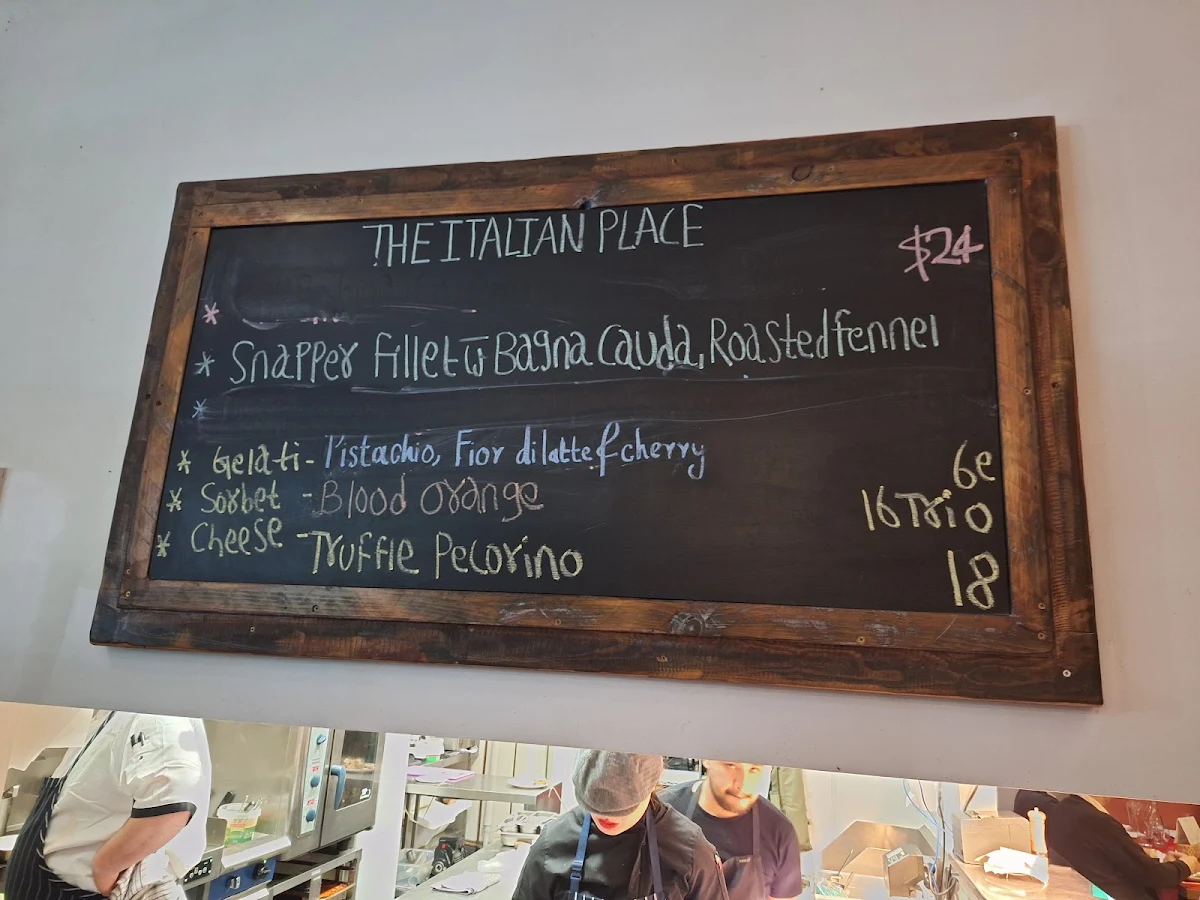 THE ITALIAN PLACE
$24
*
* Snapper fillet w̄ Bagna Cauda, Roasted fennel
*
* Gelati - Pistachio, Fior di latte & cherry 6e
* Sorbet - Blood Orange 16 Trio
* Cheese - Truffle Pecorino 18